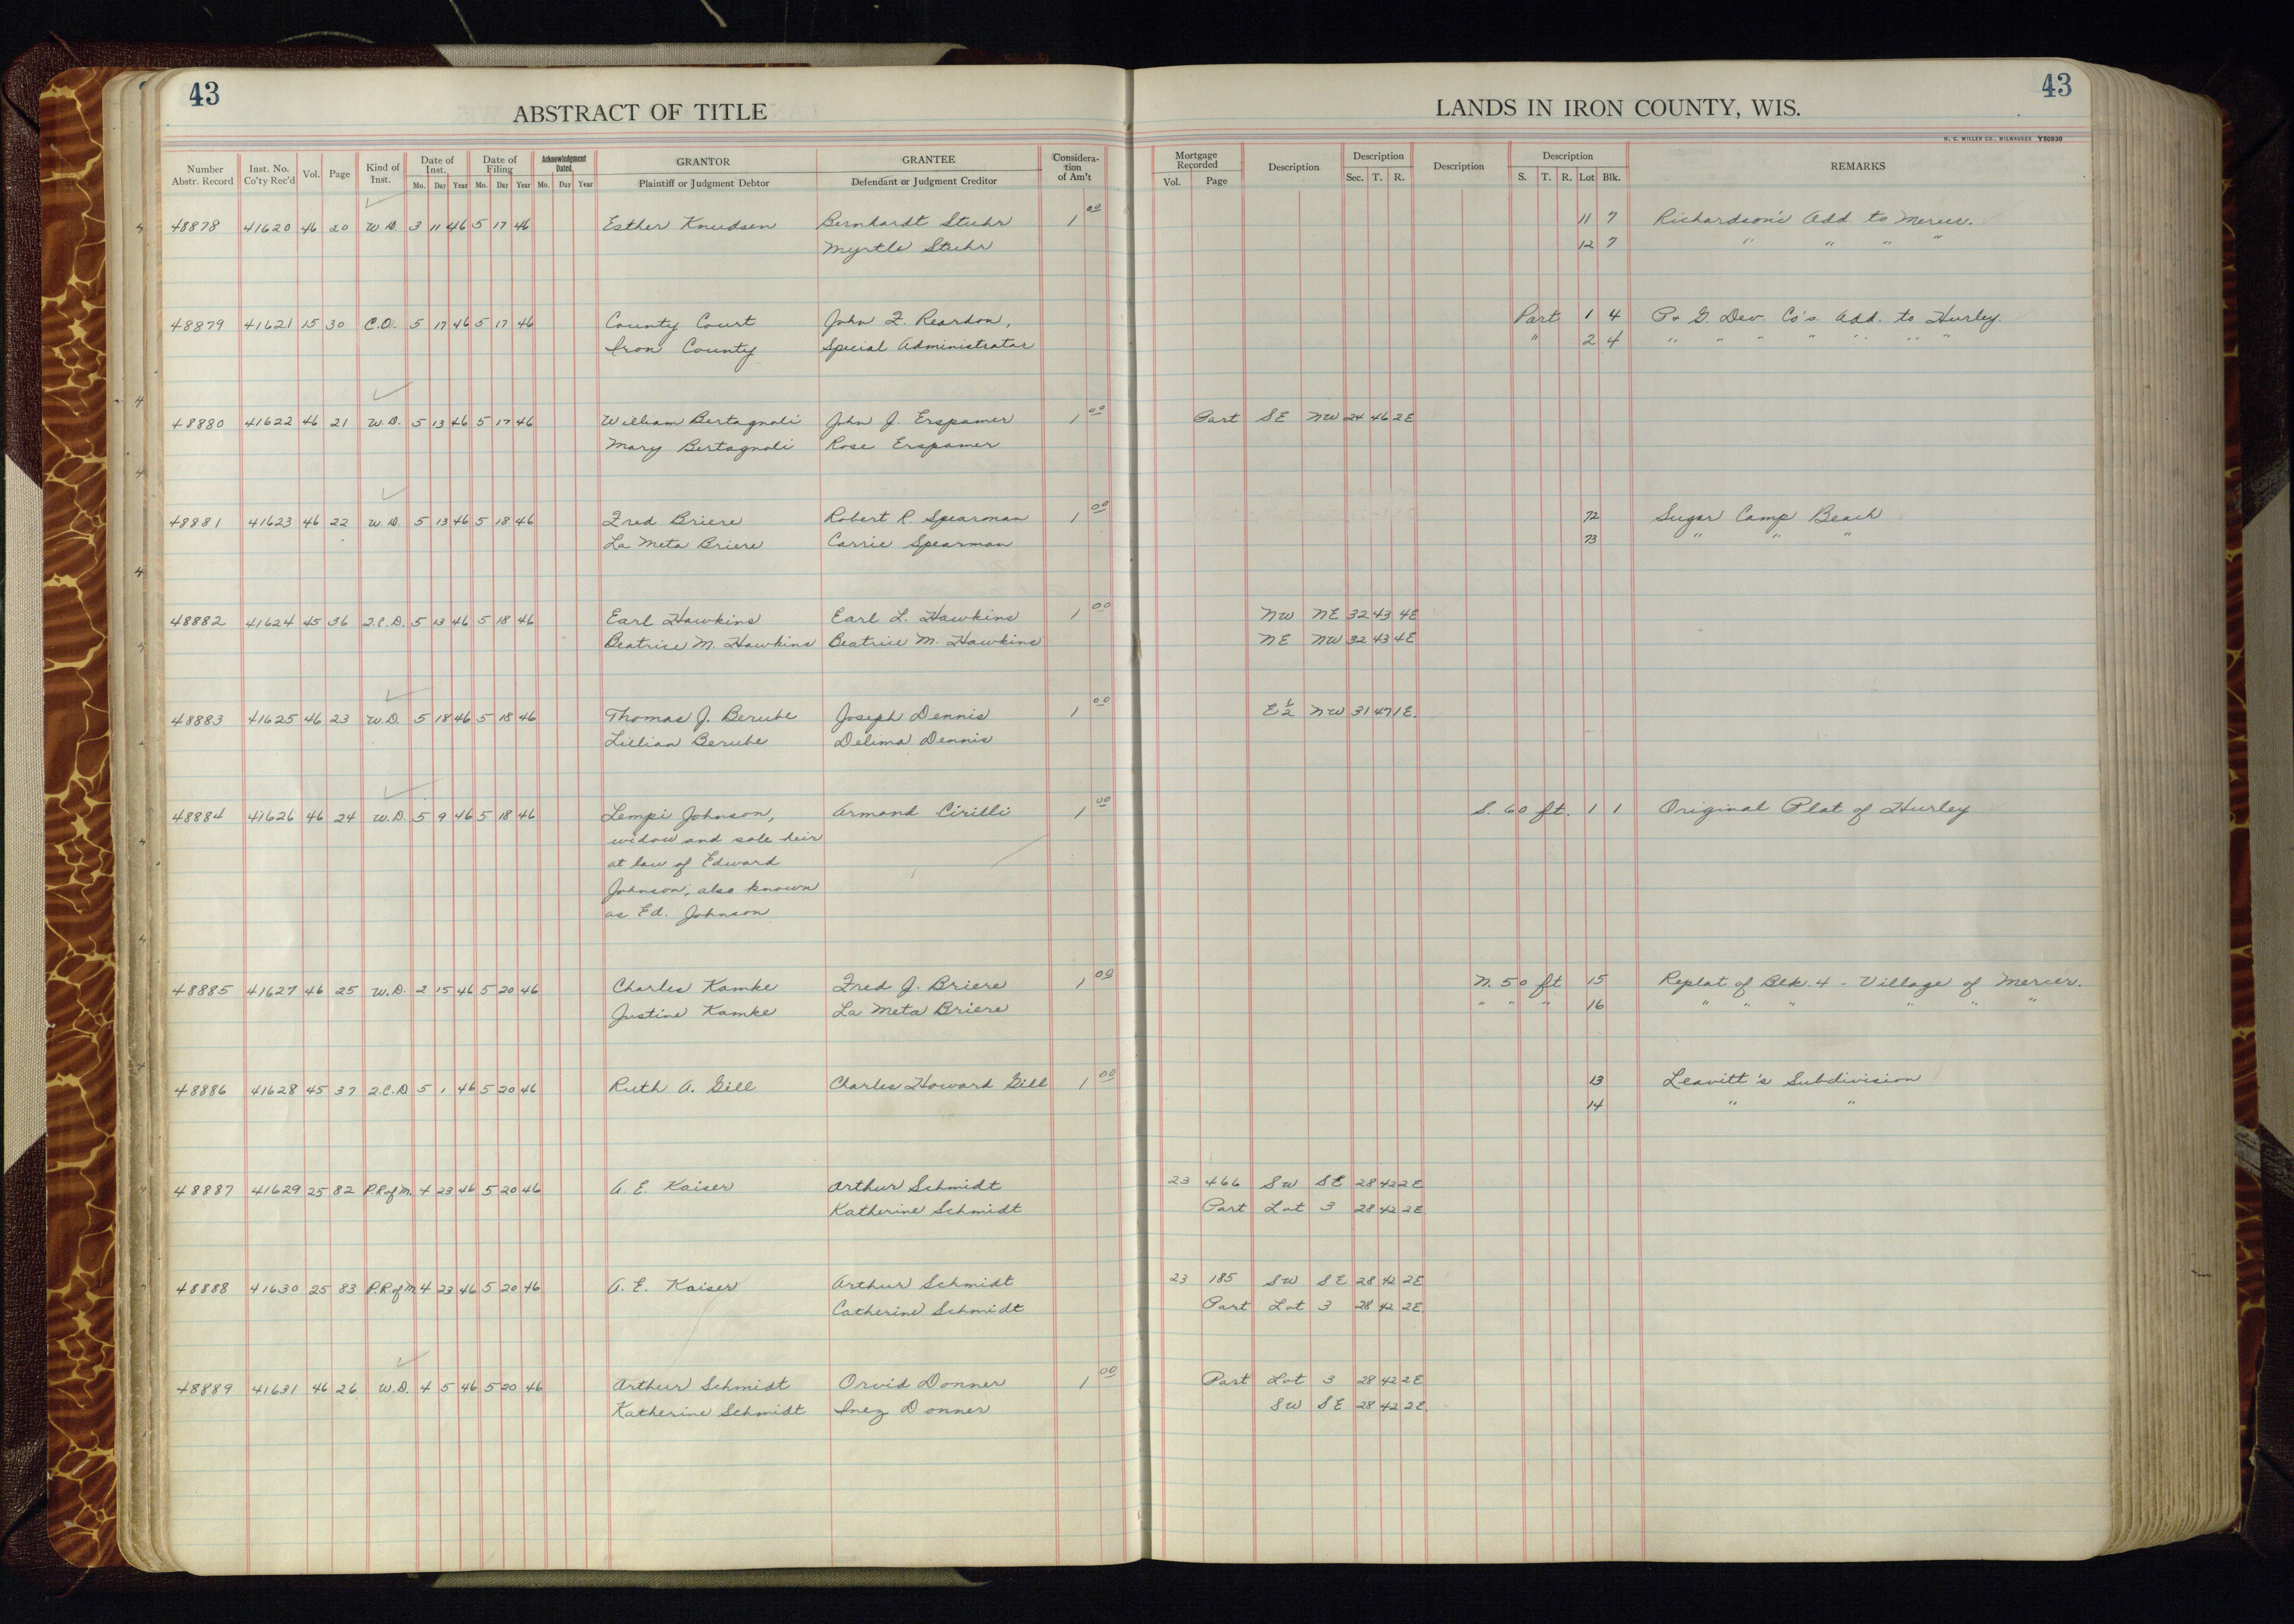 43
43
ABSTRACT OF TITLE
LANDS IN IRON COUNTY, WIS.
H. C. MILLER CO., MILWAUKEE Y50930
Number Abstr. Record Inst. No. Co'ty Rec'd Vol. Page Kind of Inst. Date of Inst. Mo. Day Year Date of Filing Mo. Day Year Acknowledgment Dated Mo. Day Year GRANTOR Plaintiff or Judgment Debtor GRANTEE Defendant or Judgment Creditor Consideration of Am't
Mortgage Recorded Vol. Page Description Description Sec. T. R. Description Description S. T. R. Lot Blk. REMARKS
48878 41620 46 20 W.D. 3 11 46 5 17 46 Esther Knudsen Bernhardt Stuhr 1 00 11 7 Richardson's Add. to Mercer.
Myrtle Stuhr 12 7 " " " "
48879 41621 15 30 C.O. 5 17 46 5 17 46 County Court John F. Reardon, Part 1 4 P. & G. Dev. Co's. Add. to Hurley.
Iron County Special Administrator " 2 4 " " " " " " "
48880 41622 46 21 W.D. 5 13 46 5 17 46 William Bertagnoli John J. Erspamer 1 00 Part SE NW 24 46 2E
Mary Bertagnoli Rose Erspamer
48881 41623 46 22 W.D. 5 13 46 5 18 46 Fred Briere Robert R. Spearman 1 00 72 Sugar Camp Beach
La Meta Briere Carrie Spearman 73 " " "
48882 41624 45 36 Q.C.D. 5 13 46 5 18 46 Earl Hawkins Earl L. Hawkins 1 00 NW NE 32 43 4E
Beatrice M. Hawkins Beatrice M. Hawkins NE NW 32 43 4E
48883 41625 46 23 W.D. 5 18 46 5 18 46 Thomas J. Berube Joseph Dennis 1 00 E½ NW 31 47 1E.
Lillian Berube Delima Dennis
48884 41626 46 24 W.D. 5 9 46 5 18 46 Lempi Johnson, Armond Cirilli 1 00 S. 60 ft. 1 1 Original Plat of Hurley
widow and sole heir
at law of Edward
Johnson; also known
as Ed. Johnson
48885 41627 46 25 W.D. 2 15 46 5 20 46 Charles Kamke Fred J. Briere 1 00 N. 50 ft 15 Replat of Blk. 4 - Village of Mercer.
Justine Kamke La Meta Briere " " " 16 " " " " " "
48886 41628 45 37 Q.C.D 5 1 46 5 20 46 Ruth A. Gill Charles Howard Gill 1 00 13 Leavitt's Subdivision
14 " "
48887 41629 25 82 P.R.of M. 4 23 46 5 20 46 A. E. Kaiser Arthur Schmidt 23 466 SW SE 28 42 2E
Katherine Schmidt Part Lot 3 28 42 2E
48888 41630 25 83 P.R.of M. 4 23 46 5 20 46 A. E. Kaiser Arthur Schmidt 23 185 SW SE 28 42 2E
Catherine Schmidt Part Lot 3 28 42 2E.
48889 41631 46 26 W.D. 4 5 46 5 20 46 Arthur Schmidt Orvid Donner 1 00 Part Lot 3 28 42 2E
Katherine Schmidt Inez Donner SW SE 28 42 2E.